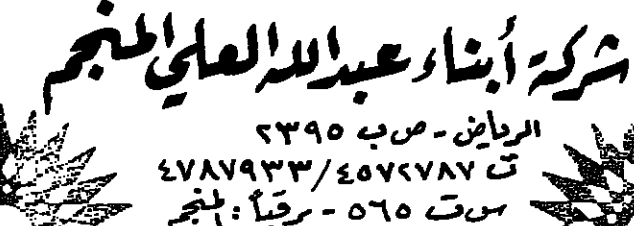 شركة أبناء عبدالله العلي المنجم
الرياض - ص ب ٢٣٩٥
ت ٤٥٧٢٧٨٧/٤٧٨٧٩٣٣
س ت ٥٦٥ - برقياً : المنجم